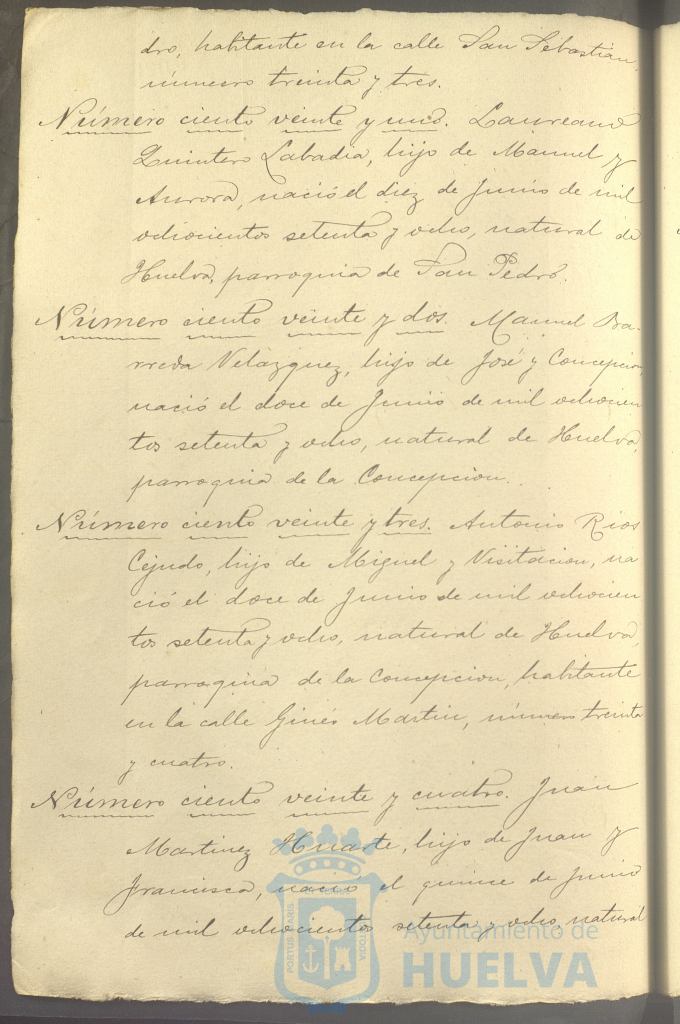 dro, habitante en la calle San Sebastian,
número treinta y tres.
Número ciento veinte y uno. Laureano
Quintero Labadia, hijo de Manuel y
Aurora, nació el diez de Junio de mil
ochocientos setenta y ocho, natural de
Huelva, parroquia de San Pedro.
Número ciento veinte y dos. Manuel Ba-
rreda Velazquez, hijo de José y Concepcion,
nació el doce de Junio de mil ochocien
tos setenta y ocho, natural de Huelva,
parroquia de la Concepcion.
Número ciento veinte y tres. Antonio Rios
Cejudo, hijo de Miguel y Visitacion, na
ció el doce de Junio de mil ochocien
tos setenta y ocho, natural de Huelva,
parroquia de la Concepcion, habitante
en la calle Ginés Martin, número treinta
y cuatro.
Número ciento veinte y cuatro. Juan
Martinez Huarte, hijo de Juan y
Francisca, nació el quince de Junio
de mil ochocientos setenta y ocho, natural
PORTUS MARIS
CUSTODIA
Ayuntamiento de
HUELVA